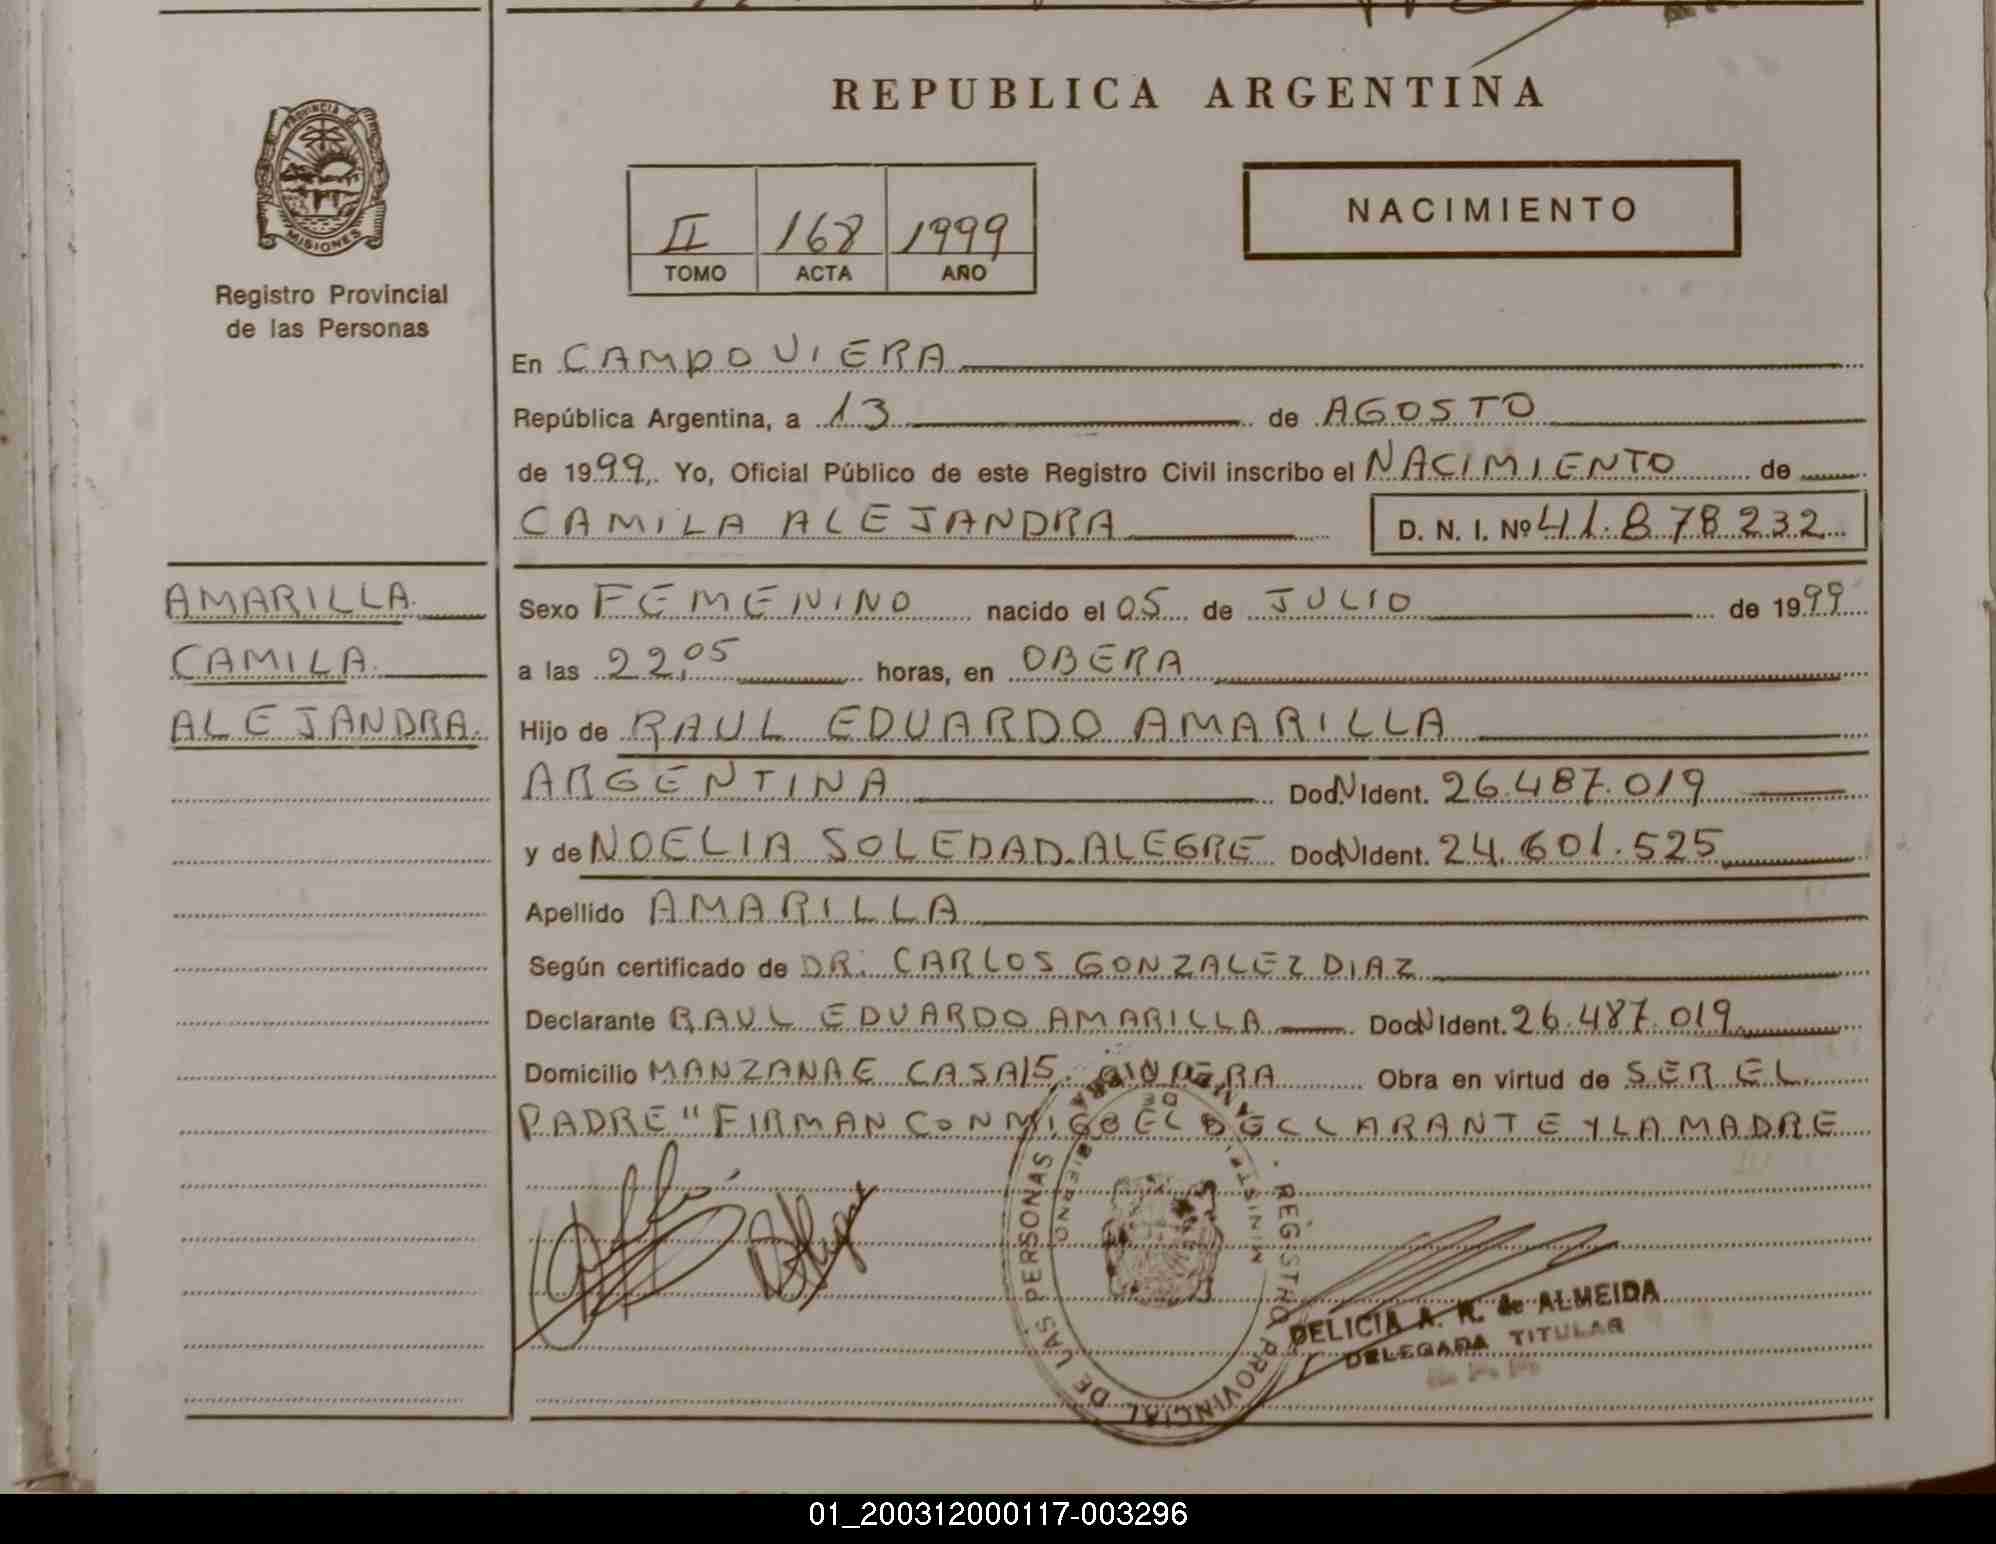 REPUBLICA ARGENTINA
PROVINCIA DE
MISIONES
Registro Provincial
de las Personas
II 168 1999
TOMO ACTA AÑO
NACIMIENTO
En CAMPO VIERA
República Argentina, a 13 de AGOSTO
de 1999. Yo, Oficial Público de este Registro Civil inscribo el NACIMIENTO de
CAMILA ALEJANDRA D. N. I. Nº 41.878232
AMARILLA
CAMILA
ALEJANDRA.
Sexo FEMENINO nacido el 05 de JULIO de 1999
a las 22,05 horas, en OBERA
Hijo de RAUL EDUARDO AMARILLA
ARGENTINA Doc.N Ident. 26.487.019
y de NOELIA SOLEDAD ALEGRE Doc.N Ident. 24.601.525
Apellido AMARILLA
Según certificado de DR. CARLOS GONZALEZ DIAZ
Declarante RAUL EDUARDO AMARILLA Doc.N Ident. 26.487.019
Domicilio MANZANA E CASA 15. Obra en virtud de SER EL
PADRE "FIRMAN CONMIGO EL DECLARANTE Y LA MADRE
REGISTRO PROVINCIAL DE LAS PERSONAS
DELICIA A. R. de ALMEIDA
DELEGADA TITULAR
01_200312000117-003296